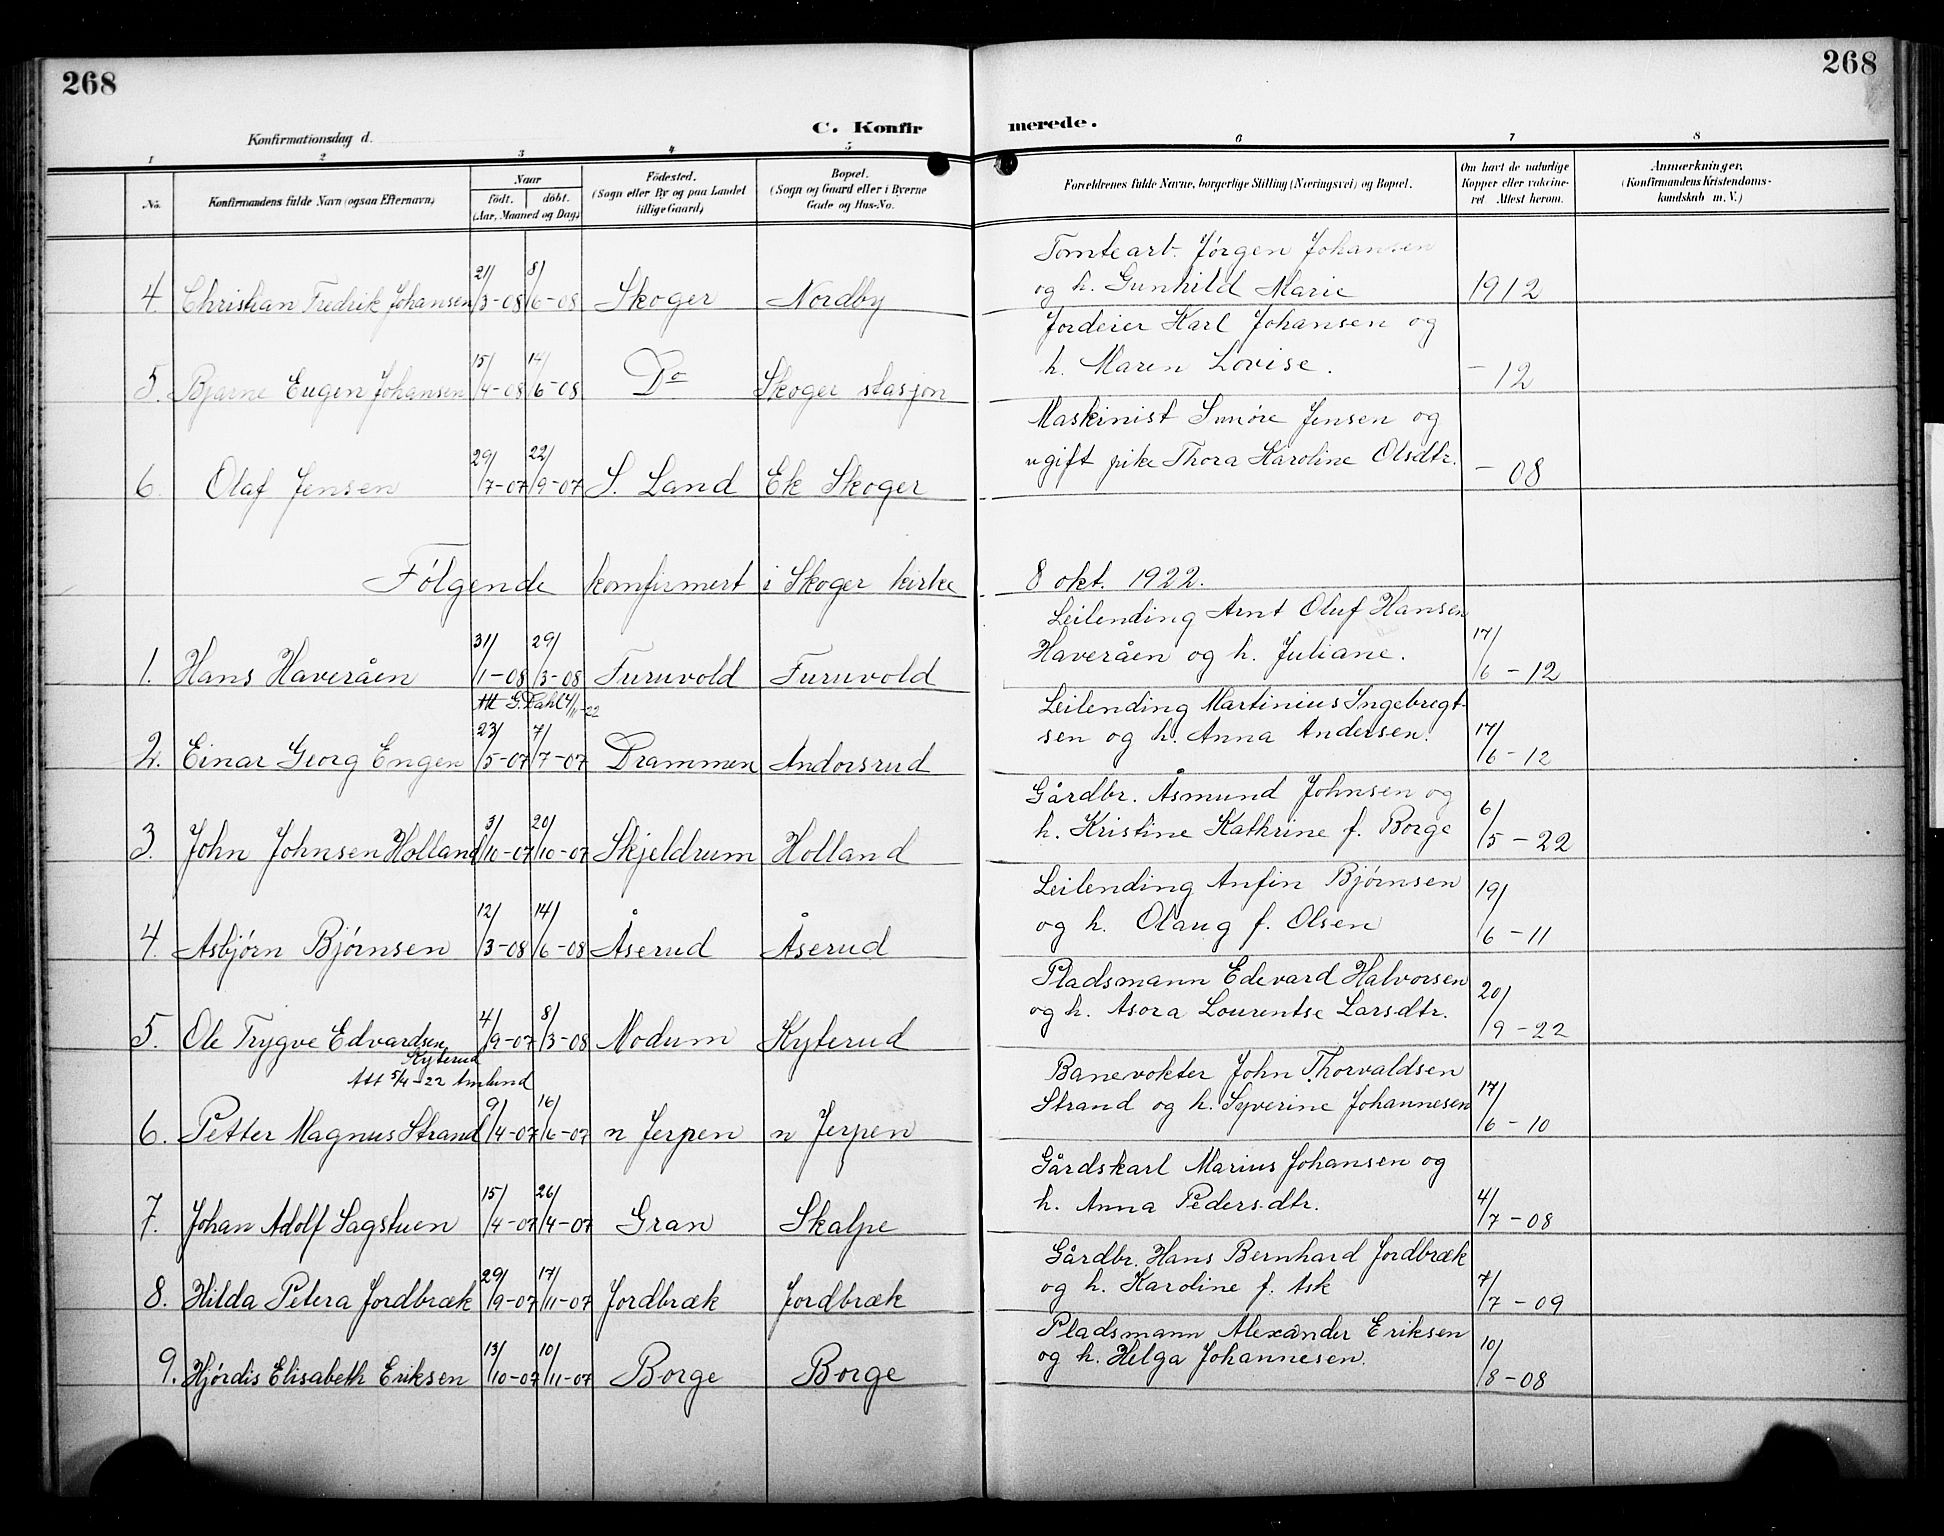 268
268
C. Konfirmerede.
Konfirmationsdag d.
1 2 3 4 5 6 7 8
No.
Konfirmandens fulde Navn (ogsaa Efternavn)
Naar
födt. döbt.
(Aar, Maaned og Dag)
Födested.
(Sogn eller By og paa Landet
tillige Gaard)
Bopæl.
(Sogn og Gaard eller i Byerne
Gade og Hus-No.
Forældrenes fulde Navne, borgerlige Stilling (Næringsvei) og Bopæl.
Om havt de naturlige
Kopper eller vaccine-
ret Attest herom.
Anmærkninger,
(Konfirmandens Kristendoms-
kundskab m. V.)
Tomtearb. Jørgen Johansen
4. Christian Fredrik Johansen 21/3-08 8/6-08 Skoger Nordby og h. Gunhild Marie 1912
Jordeier Karl Johansen og
5. Bjarne Eugen Johansen 15/4-08 14/6-08 Do Skoger stasjon h. Maren Lovise. - 12
Maskinist Simøre Jensen og
6. Olaf Jensen 29/7-07 22/9-07 S. Land Ek Skoger ugift pike Thora Karoline Olsdtr. - 08
Følgende komfirmert i Skoger kirke 8 okt. 1922.
Leilending Arnt Oluf Hansen
1. Hans Haveråen 31/1-08 29/3-08 Furuvold Furuvold Haveråen og h. Juliane. 17/6-12
Att G. Dahl 4/11-22
Leilending Martinius Ingebregt-
2. Einar Georg Engen 23/5-07 7/7-07 Drammen Andorsrud sen og h. Anna Andersen. 17/6-12
Gårdbr. Åsmund Johnsen og
3. John Johnsen Holland 3/10-07 20/10-07 Skjeldrum Holland h. Kristine Kathrine f. Borge 6/5-22
Leilending Anfin Bjørnsen
4. Asbjørn Bjørnsen 12/3-08 14/6-08 Åserud Åserud og h. Olaug f. Olsen 19/6-11
Pladsmann Edevard Halvorsen
5. Ole Trygve Edvardsen 4/9-07 8/3-08 Modum Kyterud og h. Asora Lourentse Larsdtr. 20/9-22
Kyterud
Att 5/4-22 Amlund
Banevokter John Thorvaldsen
6. Petter Magnus Strand 9/4-07 16/6-07 n Jerpen n Jerpen Strand og h. Syverine Johannesen 17/6-10
Gårdskarl Marius Johansen og
7. Johan Adolf Sagstuen 15/4-07 26/4-07 Gran Skalpe h. Anna Pedersdtr. 4/7-08
Gårdbr. Hans Bernhard Jordbræk
8. Hilda Petera Jordbræk 29/9-07 17/11-07 Jordbræk Jordbræk og h. Karoline f. Ask 7/7-09
Pladsmann Alexander Eriksen
9. Hjørdis Elisabeth Eriksen 13/10-07 10/11-07 Borge Borge og h. Helga Johannesen. 10/8-08